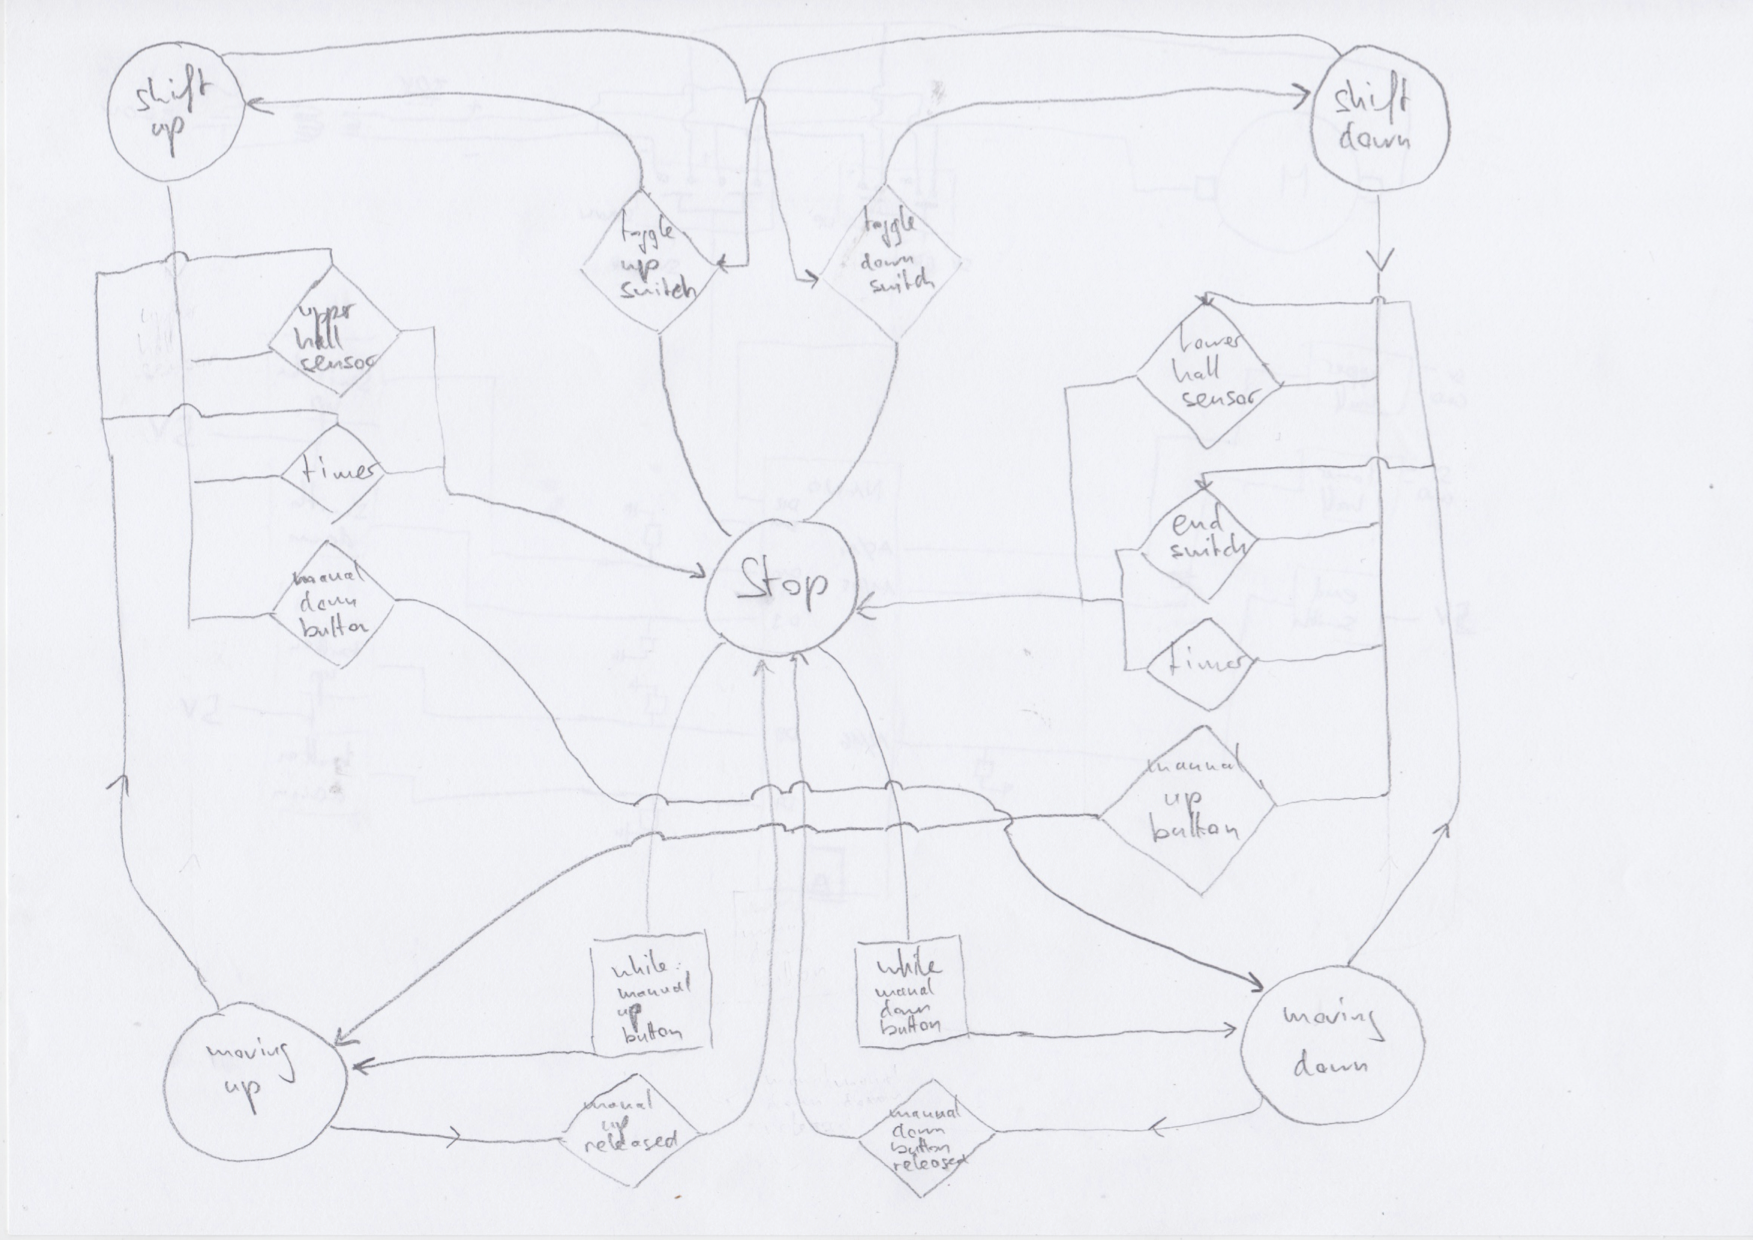 shift
up
shift
down
toggle
up
switch
toggle
down
switch
upper
hall
sensor
lower
hall
sensor
timer
end
switch
manual
down
button
Stop
timer
manual
up
button
while
manual
up
button
while
manual
down
button
moving
up
moving
down
manual
up
released
manual
down
button
released